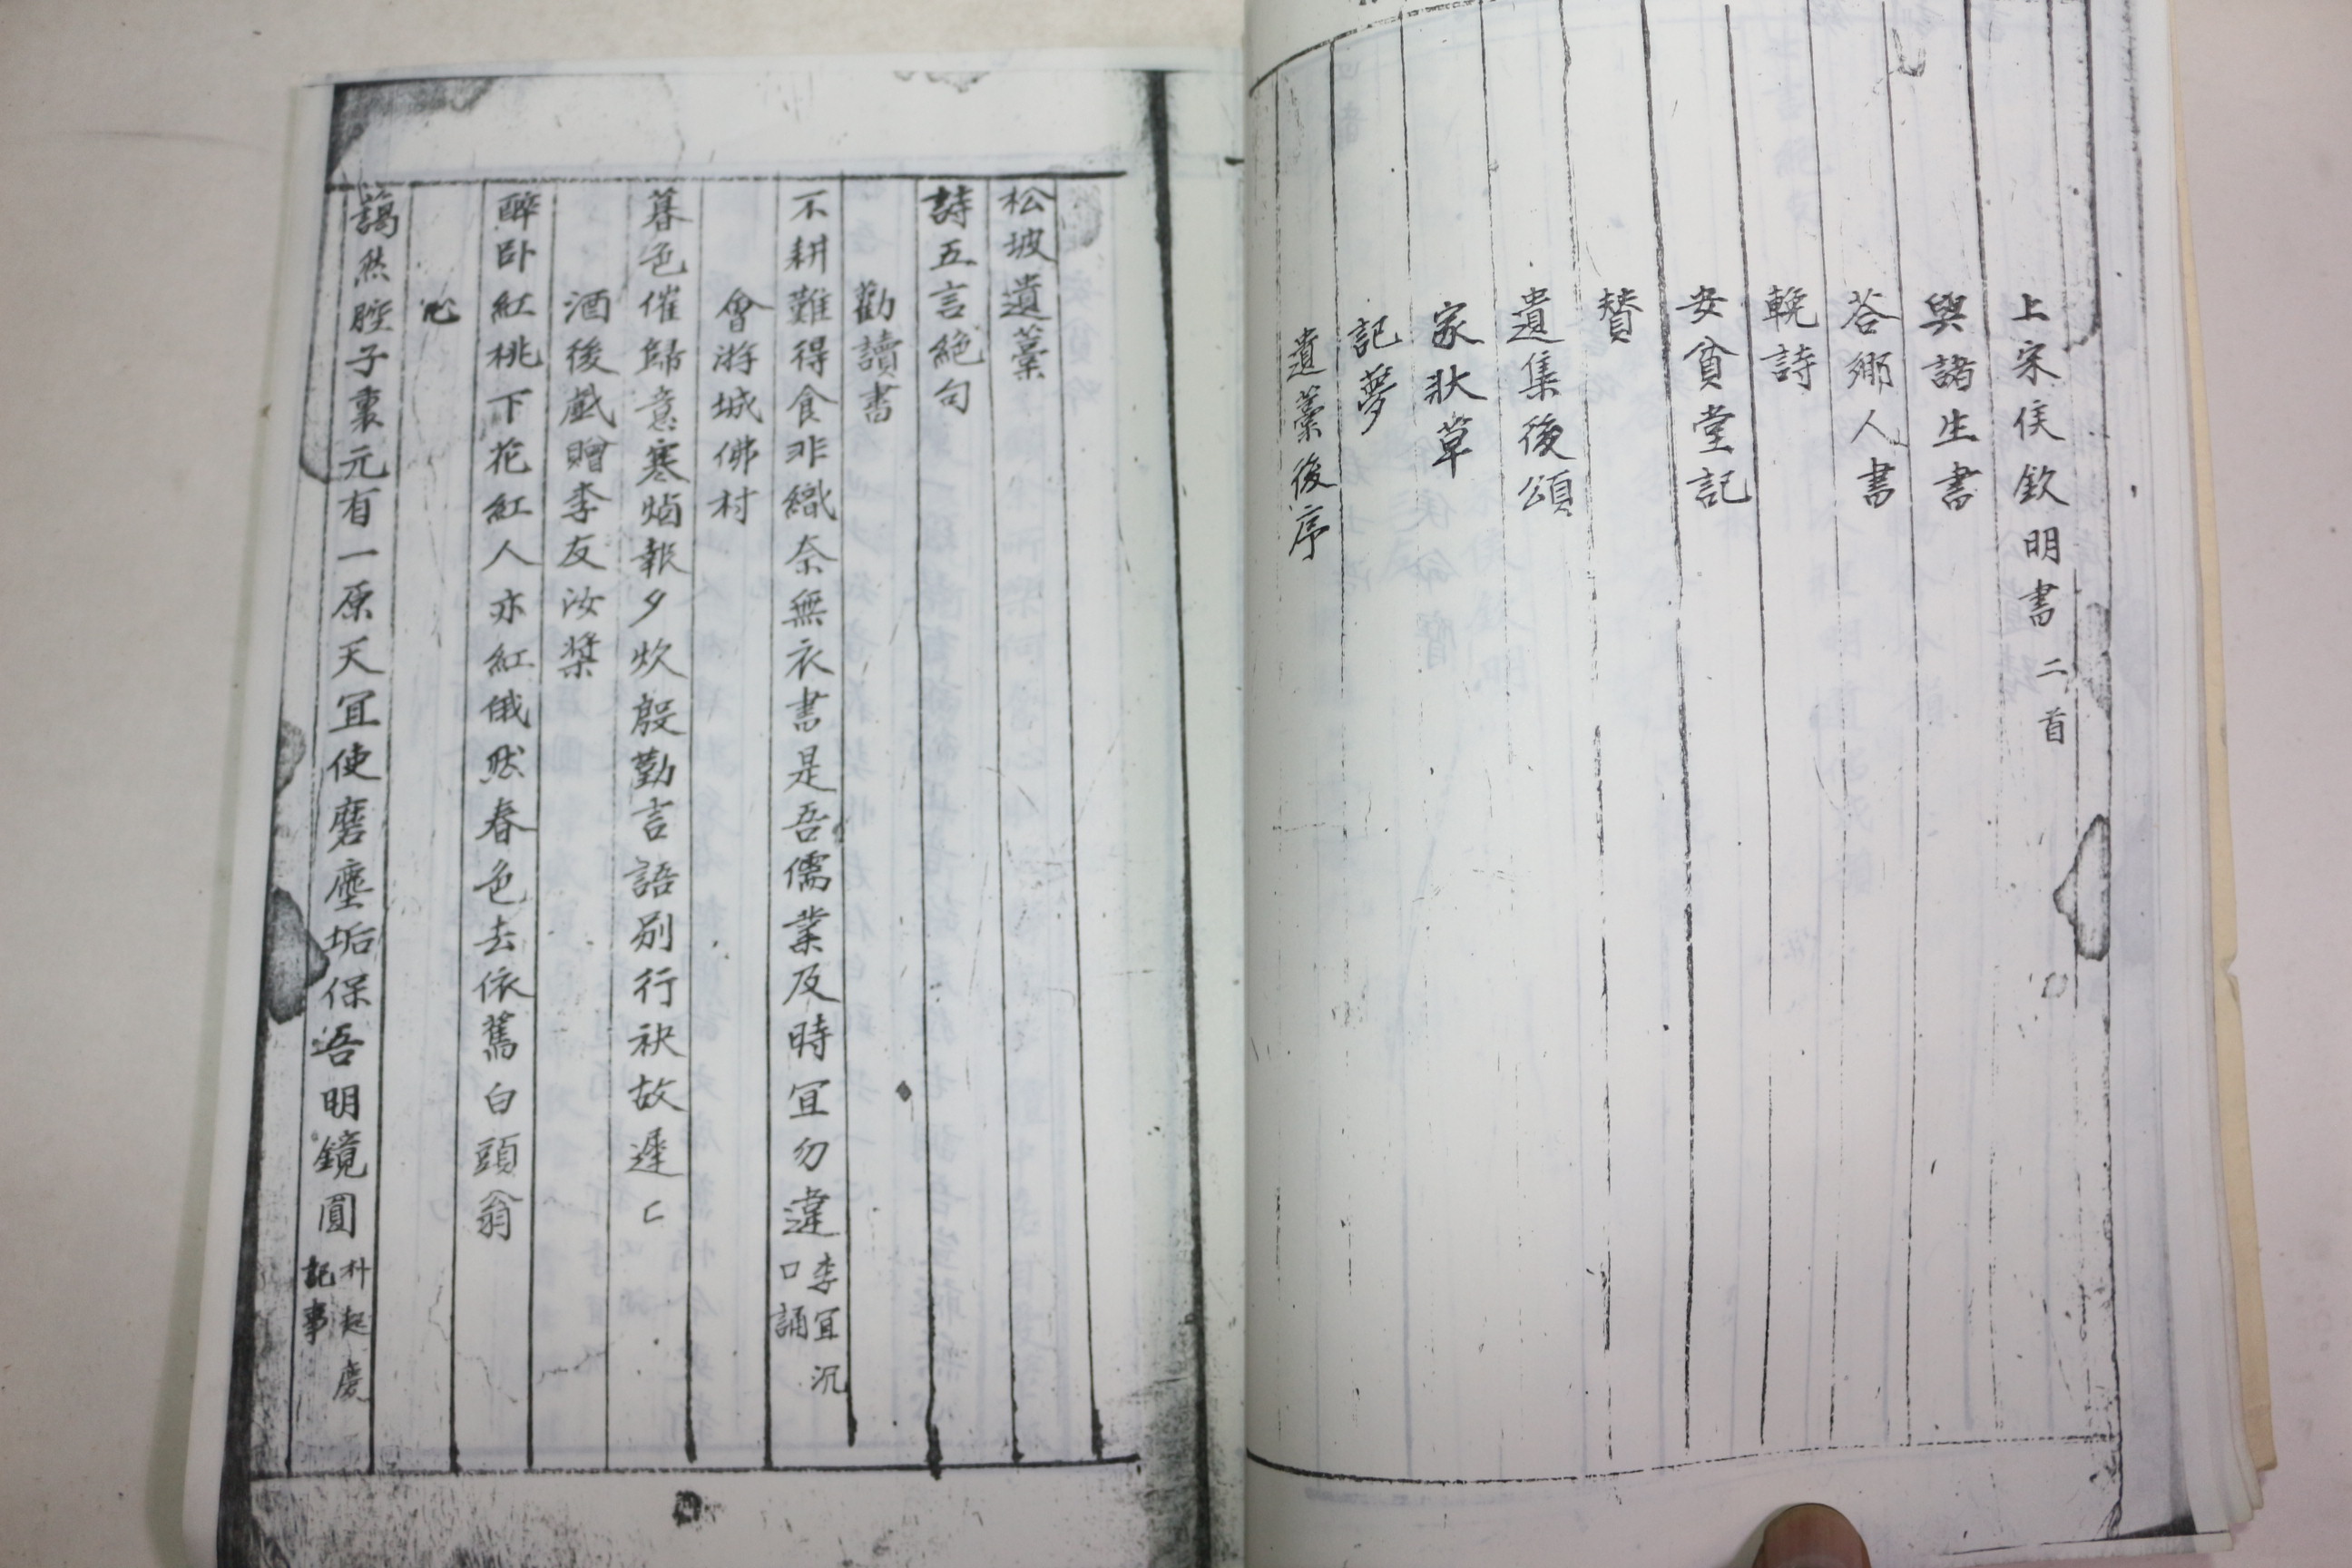 上宋侯欽明書 二首
與諸生書
答鄉人書
輓詩
安貧堂記
贊
遺集後頌
家狀草
記夢
遺藁後序
松坡遺藁
詩五言絶句
勸讀書
不耕難得食非織奈無衣書是吾儒業及時宜勿違 李宜沉口誦
會游城佛村
暮色催歸意寒烟報夕炊殷勤言語別行袂故遲〻
酒後戱贈李友汝槳
醉卧紅桃下花紅人亦紅俄然春色去依舊白頭翁
心
藹然腔子裏元有一原天宜使磨塵垢保吾明鏡圓 朴起慶記事